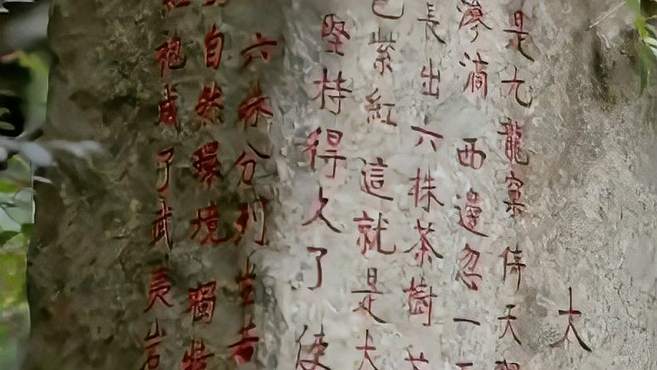 大
是九龍窠倚天
滴 西邊忽一
長出六株茶樹
紫紅 這就是大
堅持得久了 使
六株分列
自然環境 獨
袍成了武夷岩